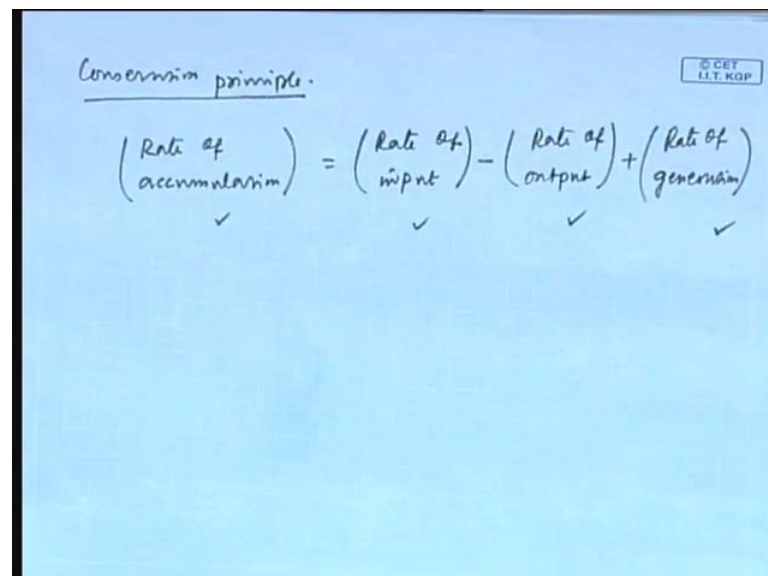 Conservation principle.
© CET
I.I.T. KGP
(Rate of accumulation) = (Rate of input) - (Rate of output) + (Rate of generation)
✓ ✓ ✓ ✓